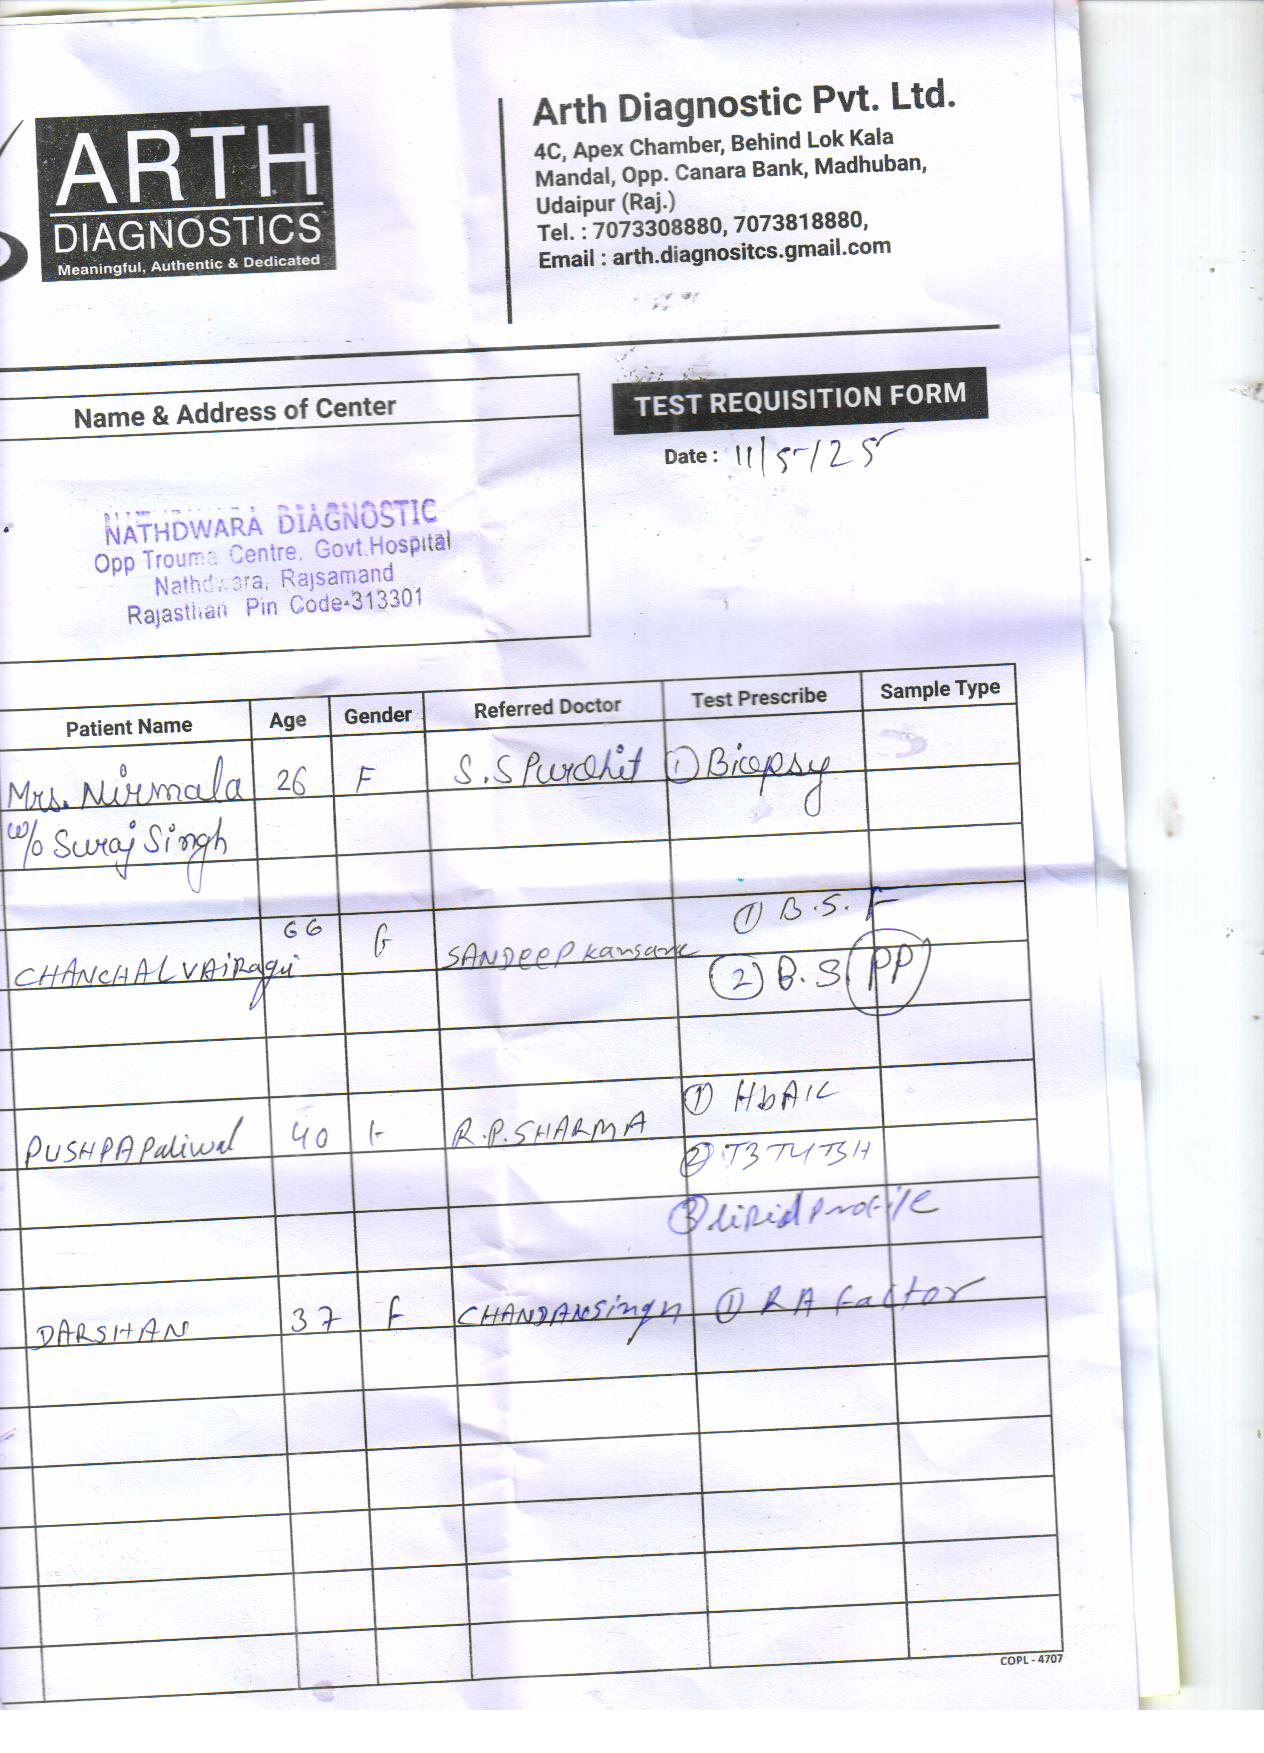 ARTH
DIAGNOSTICS
Meaningful, Authentic & Dedicated
Arth Diagnostic Pvt. Ltd.
4C, Apex Chamber, Behind Lok Kala
Mandal, Opp. Canara Bank, Madhuban,
Udaipur (Raj.)
Tel. : 7073308880, 7073818880,
Email : arth.diagnositcs.gmail.com
Name & Address of Center
TEST REQUISITION FORM
Date : 11/5/25
NATHDWARA DIAGNOSTIC
Opp Trouma Centre, Govt.Hospital
Nathdwara, Rajsamand
Rajasthan Pin Code-313301
Patient Name Age Gender Referred Doctor Test Prescribe Sample Type
Mrs. Nirmala 26 F S.S Purohit ① Biopsy
w/o Suraj Singh
① B.S. F
CHANCHAL VAiRagi 66 F SANDEEP Kansara
② B.S. PP
① HbA1C
PUSHPA Paliwal 40 F R.P. SHARMA
② T3 T4 TSH
③ Lipid profile
DARSHAN 37 F CHANDANSingh ① RA factor
COPL - 4707